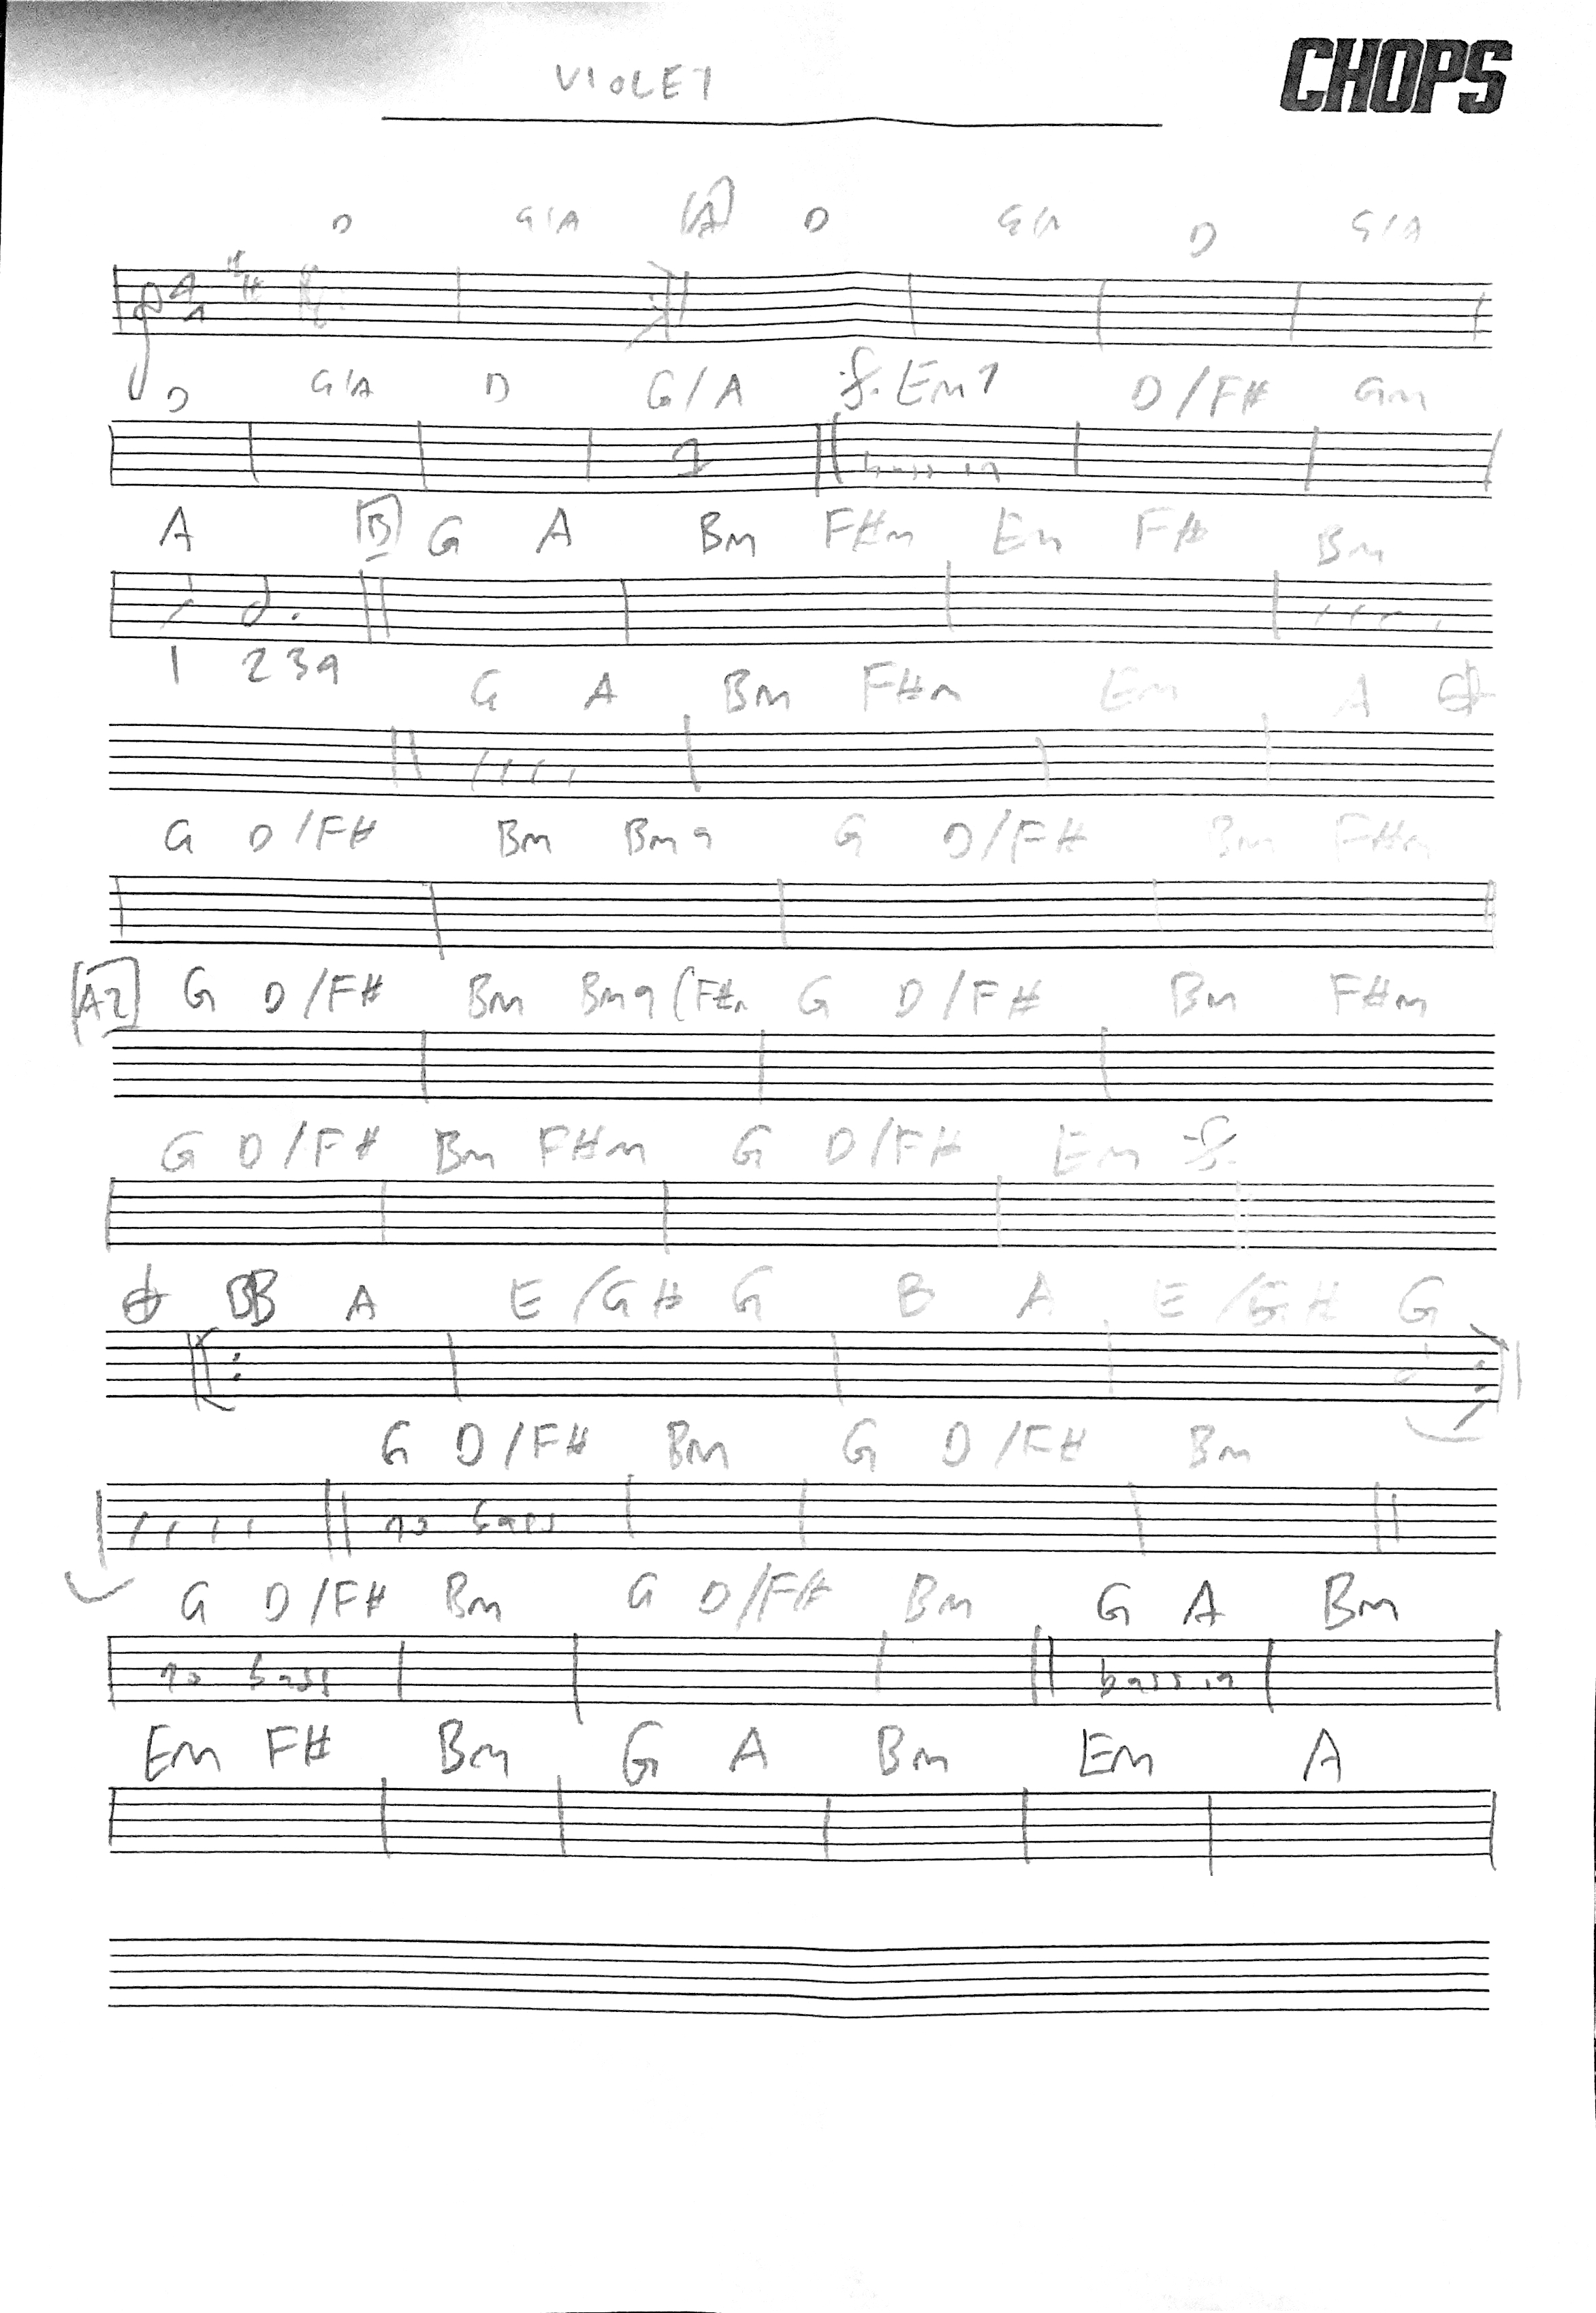 VIOLET
CHOPS
D G/A [A] D G/A D G/A
4 4 # #
D G/A D G/A Em7 D/F# Gm
1 bass in
A [B] G A Bm F#m Em F# Bm
1 2 3 4
G A Bm F#m Em A
G D/F# Bm Bm9 G D/F# Bm F#m
[A2] G D/F# Bm Bm9 (F#m G D/F# Bm F#m
G D/F# Bm F#m G D/F# Em
B A E/G# G B A E/G# G
G D/F# Bm G D/F# Bm
no bass
G D/F# Bm G D/F# Bm G A Bm
no bass bass in
Em F# Bm G A Bm Em A